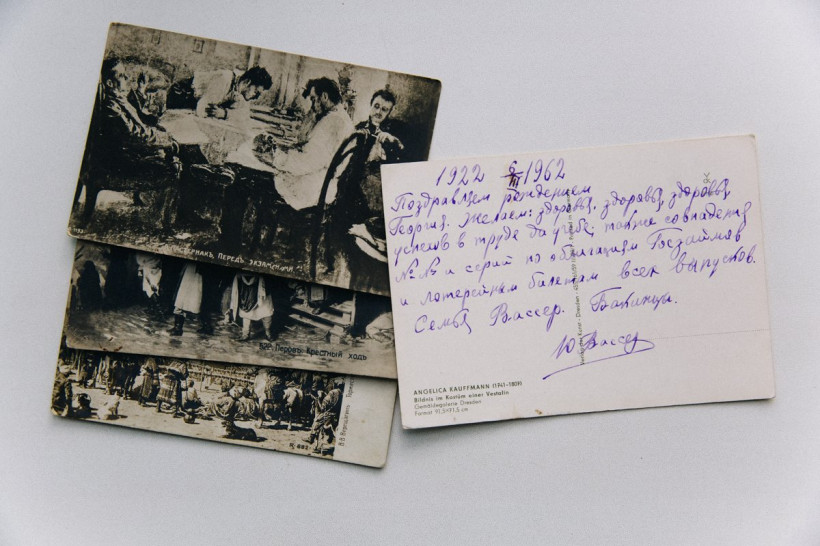 ПАСТЕРНАКЪ, ПЕРЕДЪ ЭКЗАМЕНАМИ
Перовъ Крестный ходъ
В.В. Верещагинъ
№ 882
1922 6/III 1962
Поздравляем рождением
Георгия. Желаем: здоровья, здоровья, здоровья,
успехов в труде да учебе, также совпадения
№№ и серий по облигациям Госзаймов
и лотерейным билетам всех выпусков.
Семья Вассер. Бакинцы.
Ю Вассер
ANGELICA KAUFFMANN (1741-1807)
Bildnis im Kostüm einer Vestalin
Gemäldegalerie Dresden
Format 91,5×71,5 cm